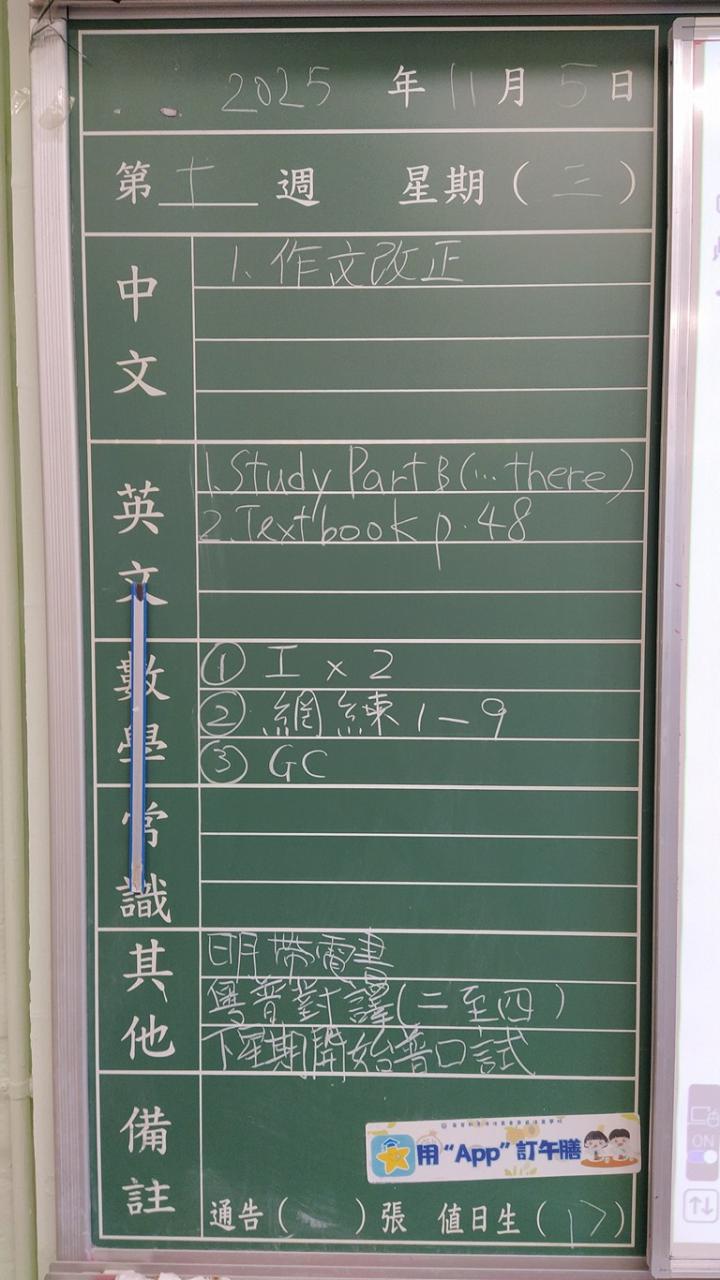 2025 年 11 月 5 日
第 十 週 星期 ( 三 )
中文
1. 作文改正
英文
1. Study Part B (... there)
2. Textbook p. 48
數學
① I x 2
② 網練 1-9
③ GC
常識
其他
明帶電書
粵普對譯(二至四)
下星期開始普口試
備註
用“App”訂午膳
通告( )張 值日生( 17 )
ON